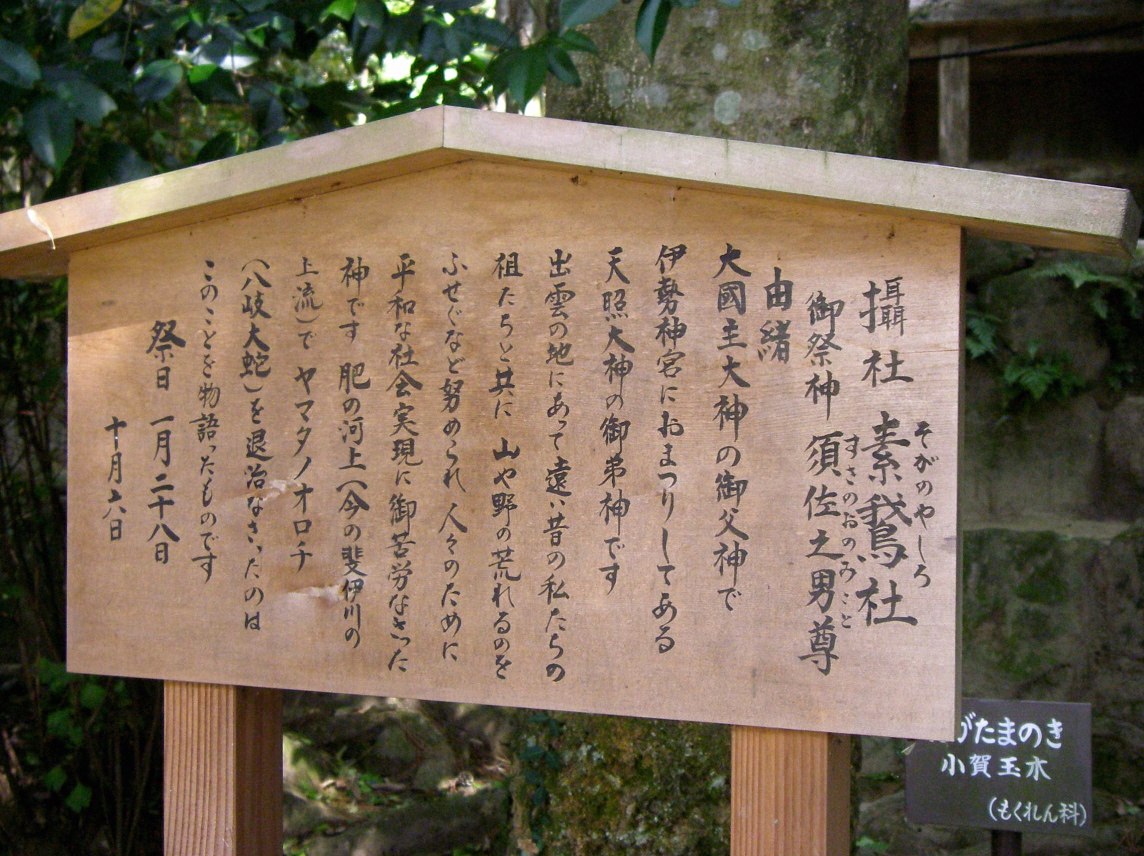 攝社 素我鳥社
そがのやしろ
御祭神 須佐之男尊
すさのおのみこと
由緒
大國主大神の御父神で
伊勢神宮におまつりしてある
天照大神の御弟神です
出雲の地にあって遠い昔の私たちの
祖たちと共に 山や野の荒れるのを
ふせぐなど努められ 人々のために
平和な社会実現に御苦労なさった
神です 肥の河上(今の斐伊川の
上流)で ヤマタノオロチ
(八岐大蛇)を退治なさったのは
このことを物語ったものです
祭日 一月二十八日
十月六日
がたまのき
小賀玉木
(もくれん科)